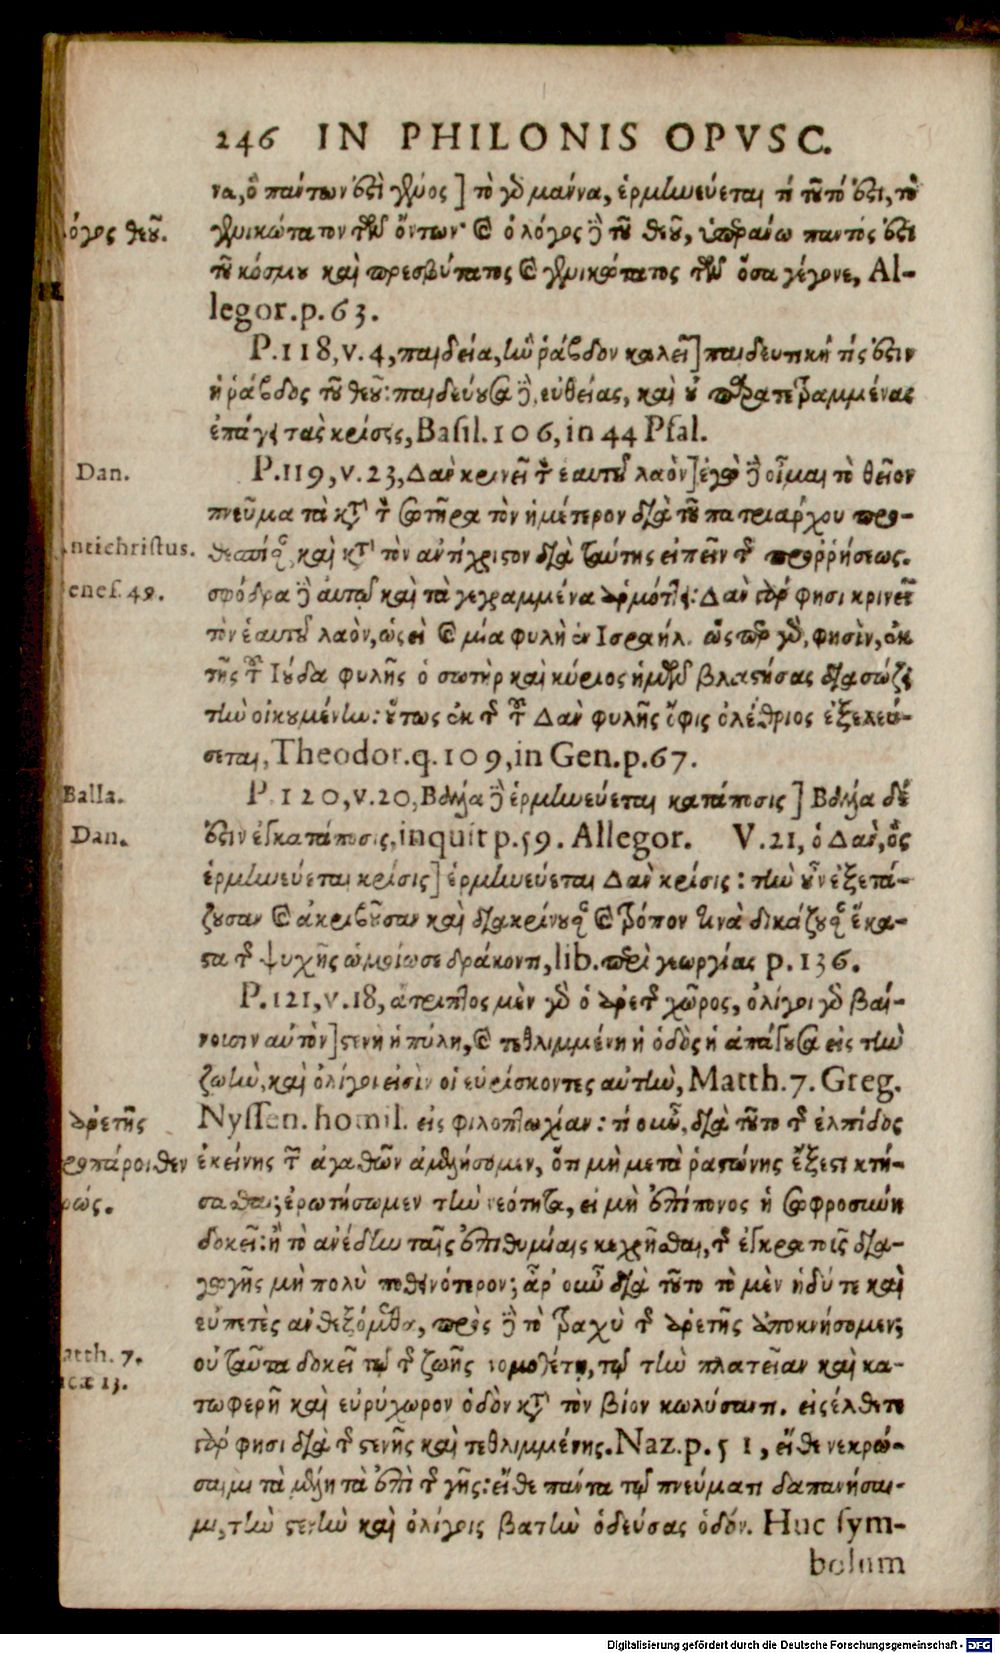 246 IN PHILONIS OPVSC.
να, ὅ πάντων ἐστὶ γένος] τὸ γὸ μάννα, ἑρμηνεύεται τί τοῦτό ἐστι, τὸ
λόγος θεοῦ.
γενικώτατον τῶν ὄντων· καὶ ὁ λόγος δὲ τοῦ θεοῦ, ὑπεράνω παντός ἐστι
τοῦ κόσμου καὶ πρεσβύτατος καὶ γενικώτατος τῶν ὅσα γέγονε, Al-
legor.p.63.
P.118,v.4, παιδεία, ἣν ῥάβδον καλεῖ] παιδευτική τίς ἐστιν
ἡ ῥάβδος τοῦ θεοῦ: παιδεύουσα δὲ, εὐθείας, καὶ οὐ παρατετραμμένας
ἐπάγει τὰς κρίσεις, Basil.106, in 44 Psal.
Dan.
P.119,v.23, Δαν κρινεῖ τὸν ἑαυτοῦ λαὸν] ἐγὼ δὲ οἶμαι τὸ θεῖον
πνεῦμα τὰ κατὰ τὸν σωτῆρα τὸν ἡμέτερον διὰ τοῦ πατριάρχου προ-
ntichristus.
θεσπίσαι, καὶ κατὰ τὸν ἀντίχριστον διὰ ταύτης εἰπεῖν τῆς προῤῥήσεως.
enes.49.
σφόδρα δὲ αὐτῷ καὶ τὰ γεγραμμένα ἁρμόττει: Δαν γάρ φησι κρινεῖ
τὸν ἑαυτοῦ λαὸν, ὡς εἰ καὶ μία φυλὴ ἐν Ισραήλ. ὥσπερ γὸ, φησὶν, ἐκ
τῆς τοῦ Ιούδα φυλῆς ὁ σωτὴρ καὶ κύριος ἡμῶν βλαστήσας διασώζει
τὴν οἰκουμένην: οὕτως ἐκ τῆς τοῦ Δαν φυλῆς ὄφις ὀλέθριος ἐξελεύ-
σεται, Theodor.q.109, in Gen.p.67.
Balla.
P.120,v.20, Βάλλα δὲ ἑρμηνεύεται κατάποσις] Βάλλα δέ
Dan.
ἐστιν ἐγκατάποσις, inquit p.59. Allegor. V.21, ὁ Δαν, ὃς
ἑρμηνεύεται κρίσις] ἑρμηνεύεται Δαν κρίσις: τὴν οὖν ἐξετά-
ζουσαν καὶ ἀκριβοῦσαν καὶ διακρίνουσαν καὶ τρόπον τινὰ δικάζουσαν ἕκα-
στα τῆς ψυχῆς ὡμοίωσε δράκοντι, lib. περὶ γεωργίας p.136.
P.121,v.18, ἀτριπτος μὲν γὸ ὁ ἀρετῆς χῶρος, ὀλίγοι γὸ βαί-
νουσιν αὐτὸν] στενὴ ἡ πύλη, καὶ τεθλιμμένη ἡ ὁδὸς ἡ ἀπάγουσα εἰς τὴν
ζωὴν, καὶ ὀλίγοι εἰσὶν οἱ εὑρίσκοντες αὐτὴν, Matth.7. Greg.
ἀρετῆς
Nyssen. homil. εἰς φιλοπτωχίαν: τί οὖν, διὰ τοῦτο τῆς ἐλπίδος
ροπάροιθεν
ἐκείνης τῶν ἀγαθῶν ἀμελήσομεν, ὅτι μὴ μετὰ ῥαστώνης ἔξεστι κτή-
ρώς.
σασθαι; ἐρωτήσωμεν τὴν νεότητα, εἰ μὴ ἐπίπονος ἡ σωφροσύνη
δοκεῖ: ἢ τὸ ἀνέδην ταῖς ἐπιθυμίαις κεχρῆσθαι, τῆς ἐγκρατοῦς δια-
γωγῆς μὴ πολὺ ποθεινότερον; ἆρ' οὖν διὰ τοῦτο τὸ μὲν ἡδύ τε καὶ
εὐπετὲς ἀνθεξόμεθα, πρὸς δὲ τὸ τραχὺ τῆς ἀρετῆς ἀποκνήσομεν;
atth. 7.
οὐ ταῦτα δοκεῖ τῷ τῆς ζωῆς νομοθέτῃ, τῷ τὴν πλατεῖαν καὶ κα-
ucæ 13.
τωφερῆ καὶ εὐρύχωρον ὁδὸν κατὰ τὸν βίον κωλύσαντι. εἰσέλθετε
γάρ φησι διὰ τῆς στενῆς καὶ τεθλιμμένης. Naz.p.51, εἴθε νεκρώ-
σαιμι τὰ μέλη τὰ ἐπὶ τῆς γῆς: εἴθε πάντα τῷ πνεύματι δαπανήσαι-
μι, τὴν στενὴν καὶ ὀλίγοις βατὴν ὁδεύσας ὁδόν. Huc sym-
bolum
Digitalisierung gefördert durch die Deutsche Forschungsgemeinschaft - DFG